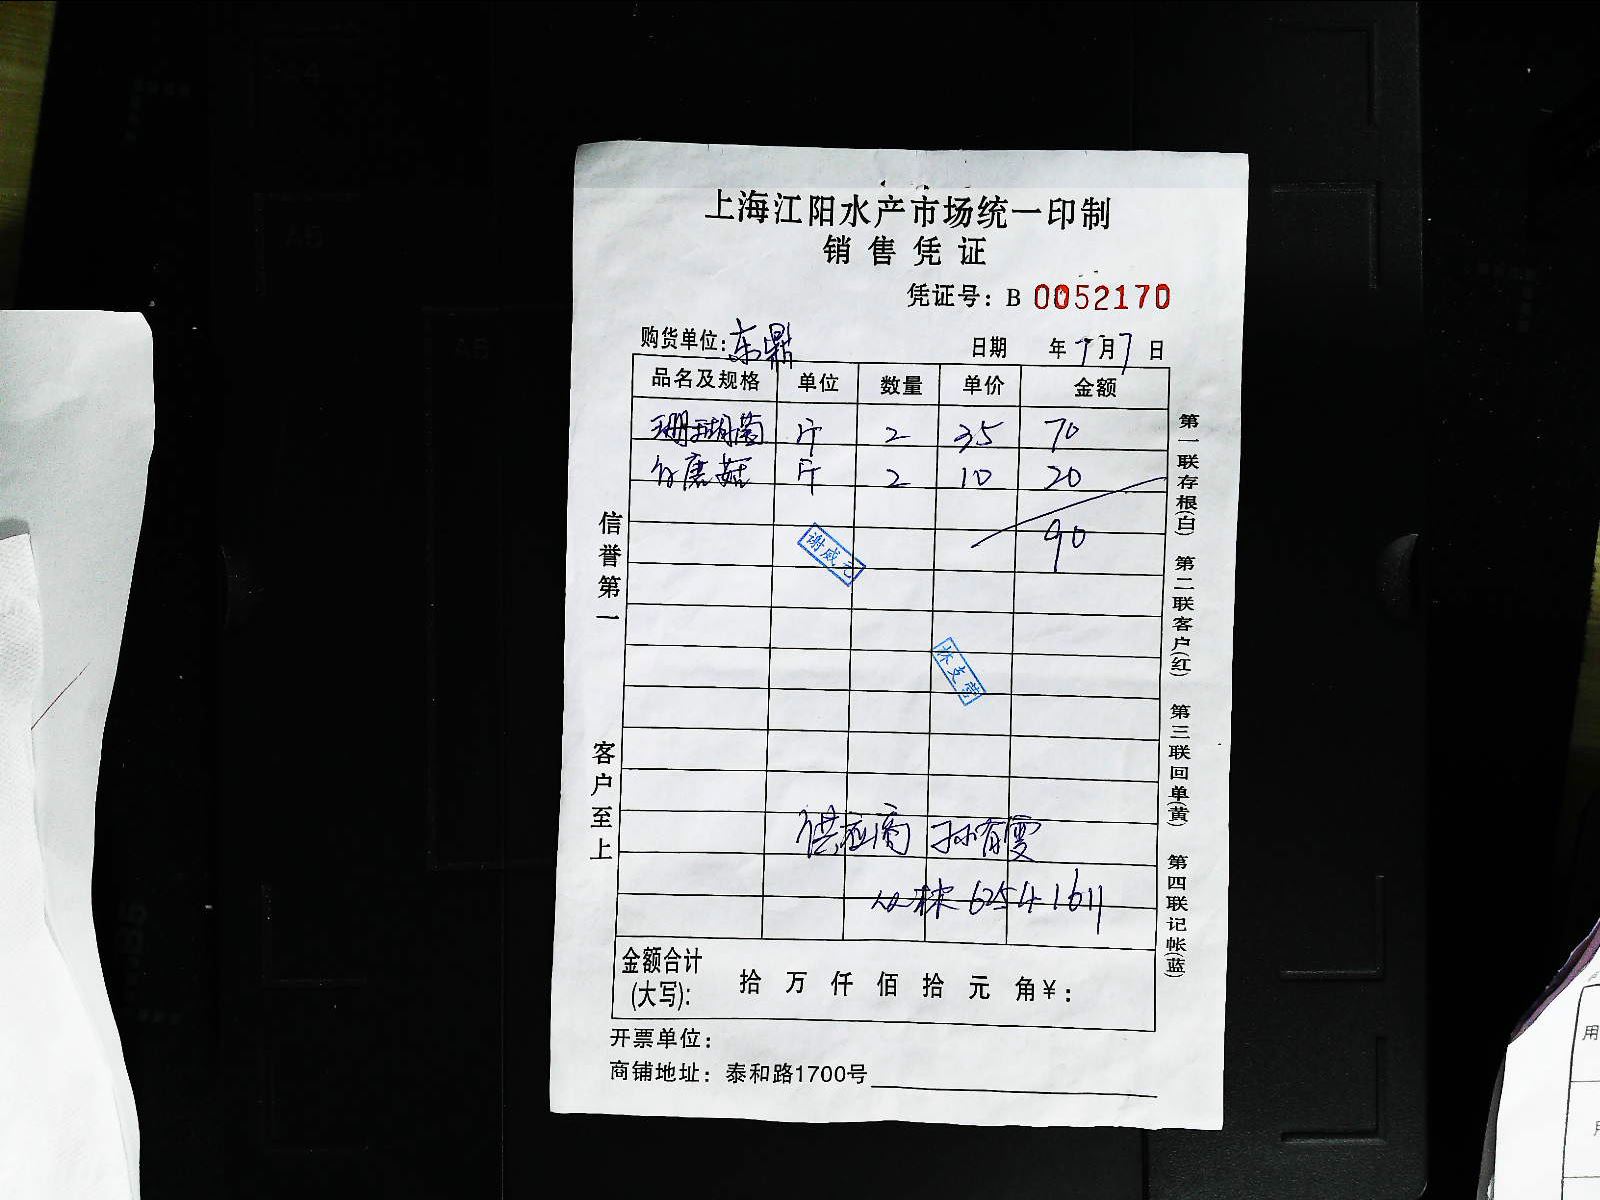 上海江阳水产市场统一印制
销售凭证
凭证号：B 0052170
购货单位：东鼎 日期 年 9月7日
品名及规格 单位 数量 单价 金额
珊瑚菌 斤 2 35 70
白蘑菇 斤 2 10 20
90
谢威元
林支营
供应商 孙有霞
625 41611
金额合计(大写)： 拾 万 仟 佰 拾 元 角￥：
开票单位：
商铺地址：泰和路1700号
信誉第一
客户至上
第一联存根(白) 第二联客户(红) 第三联回单(黄) 第四联记帐(蓝)
A4
A5
A5
B5
用